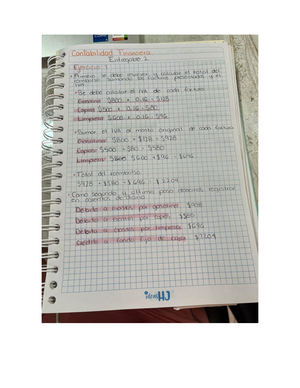 Contabilidad Financiera
Entregable 2
Ejercicio 1
• Primero se debe revisar y calcular el total del
reembolso sumando las facturas presentadas y el
IVA
• Se debe calcular el IVA de cada factura
Gasolina $800 x 0.16 = $128
Copias $500 x 0.16 = $80
Limpieza $600 x 0.16 = $96
• Sumar el IVA al monto original de cada factura
Gasolina: $800 + $128 = $928
Copias: $500 + $80 = $580
Limpieza: $600 + $96 = $696
• Total del reembolso
$928 + $580 + $696 = $2204
• Como segundo y último paso debemos registrar
en asientos de diario
Debito a Gastos por gasolina $928
Debito a Gastos por $580
Debito a Gastos por limpieza $696
Crédito a Fondo fijo de caja $2204
ideal HJ